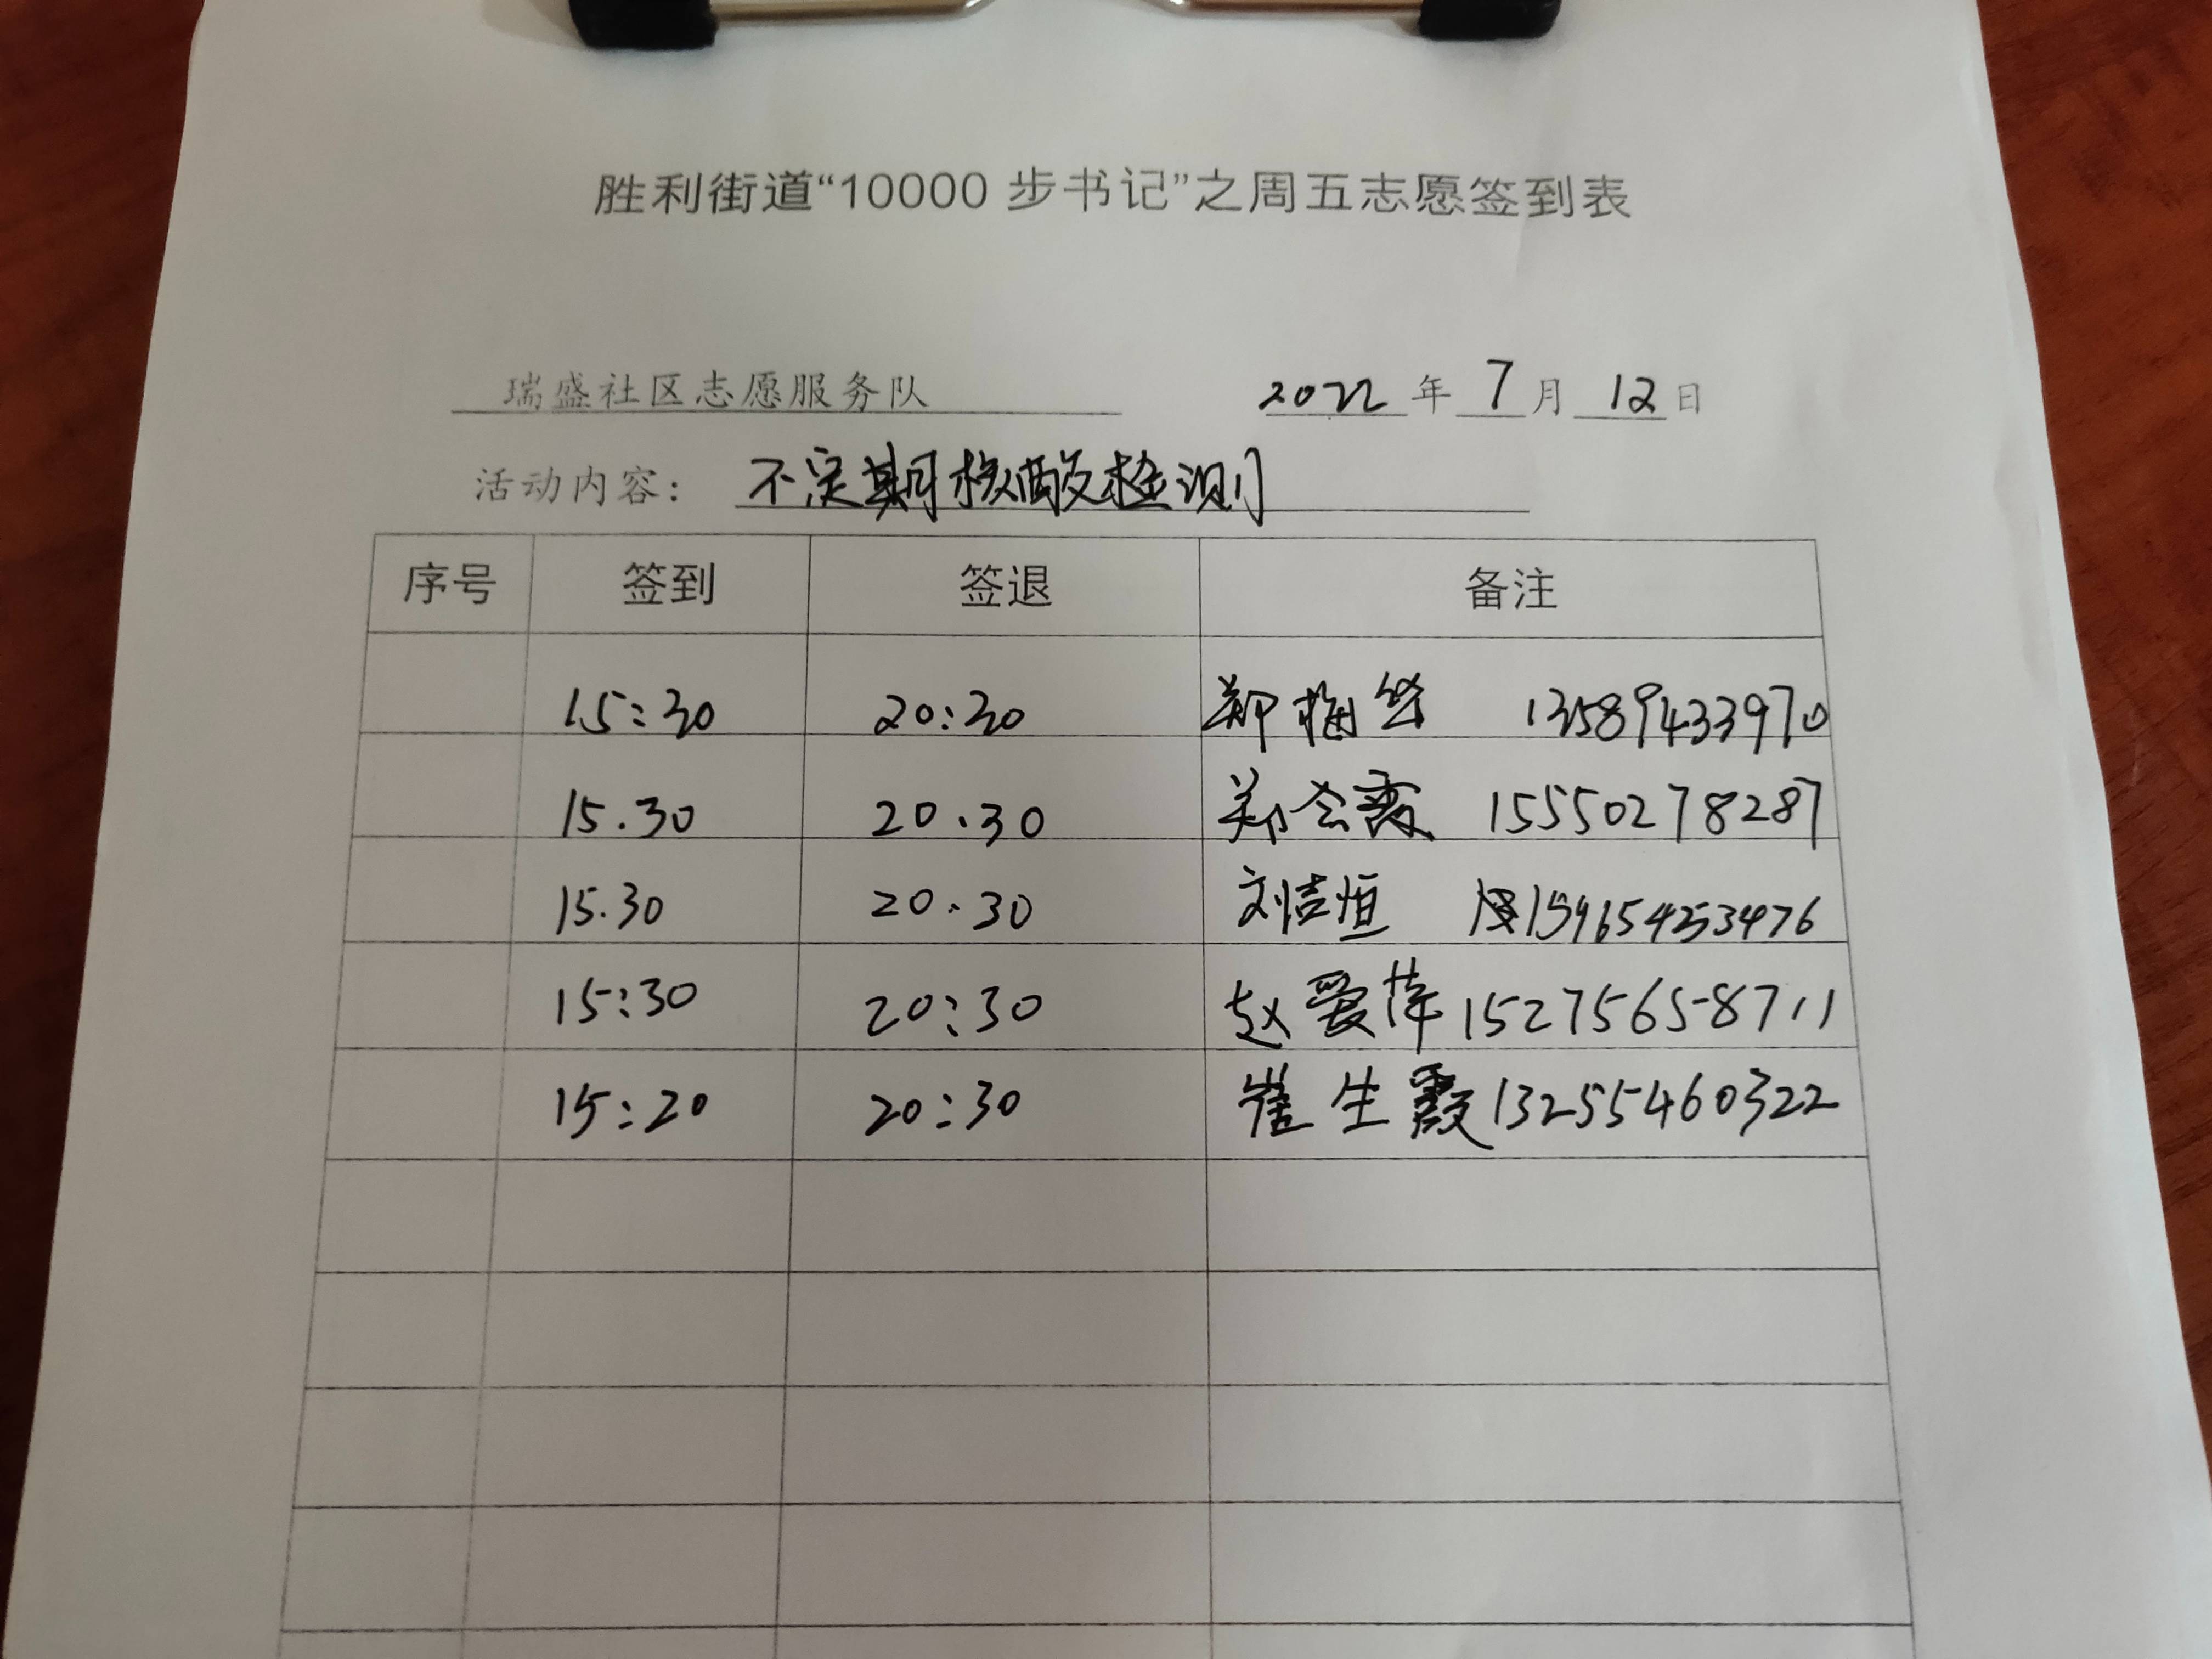 胜利街道“10000 步书记”之周五志愿签到表
瑞盛社区志愿服务队 2022 年 7 月 12 日
活动内容： 不定期核酸检测
序号 签到 签退 备注
15:30 20:30 郑梅华 13589433970
15.30 20.30 郑会霞 15550278287
15.30 20.30 刘洁恒 15965423476
15:30 20:30 赵爱萍 15275658711
15:20 20:30 崔生霞 13255460322